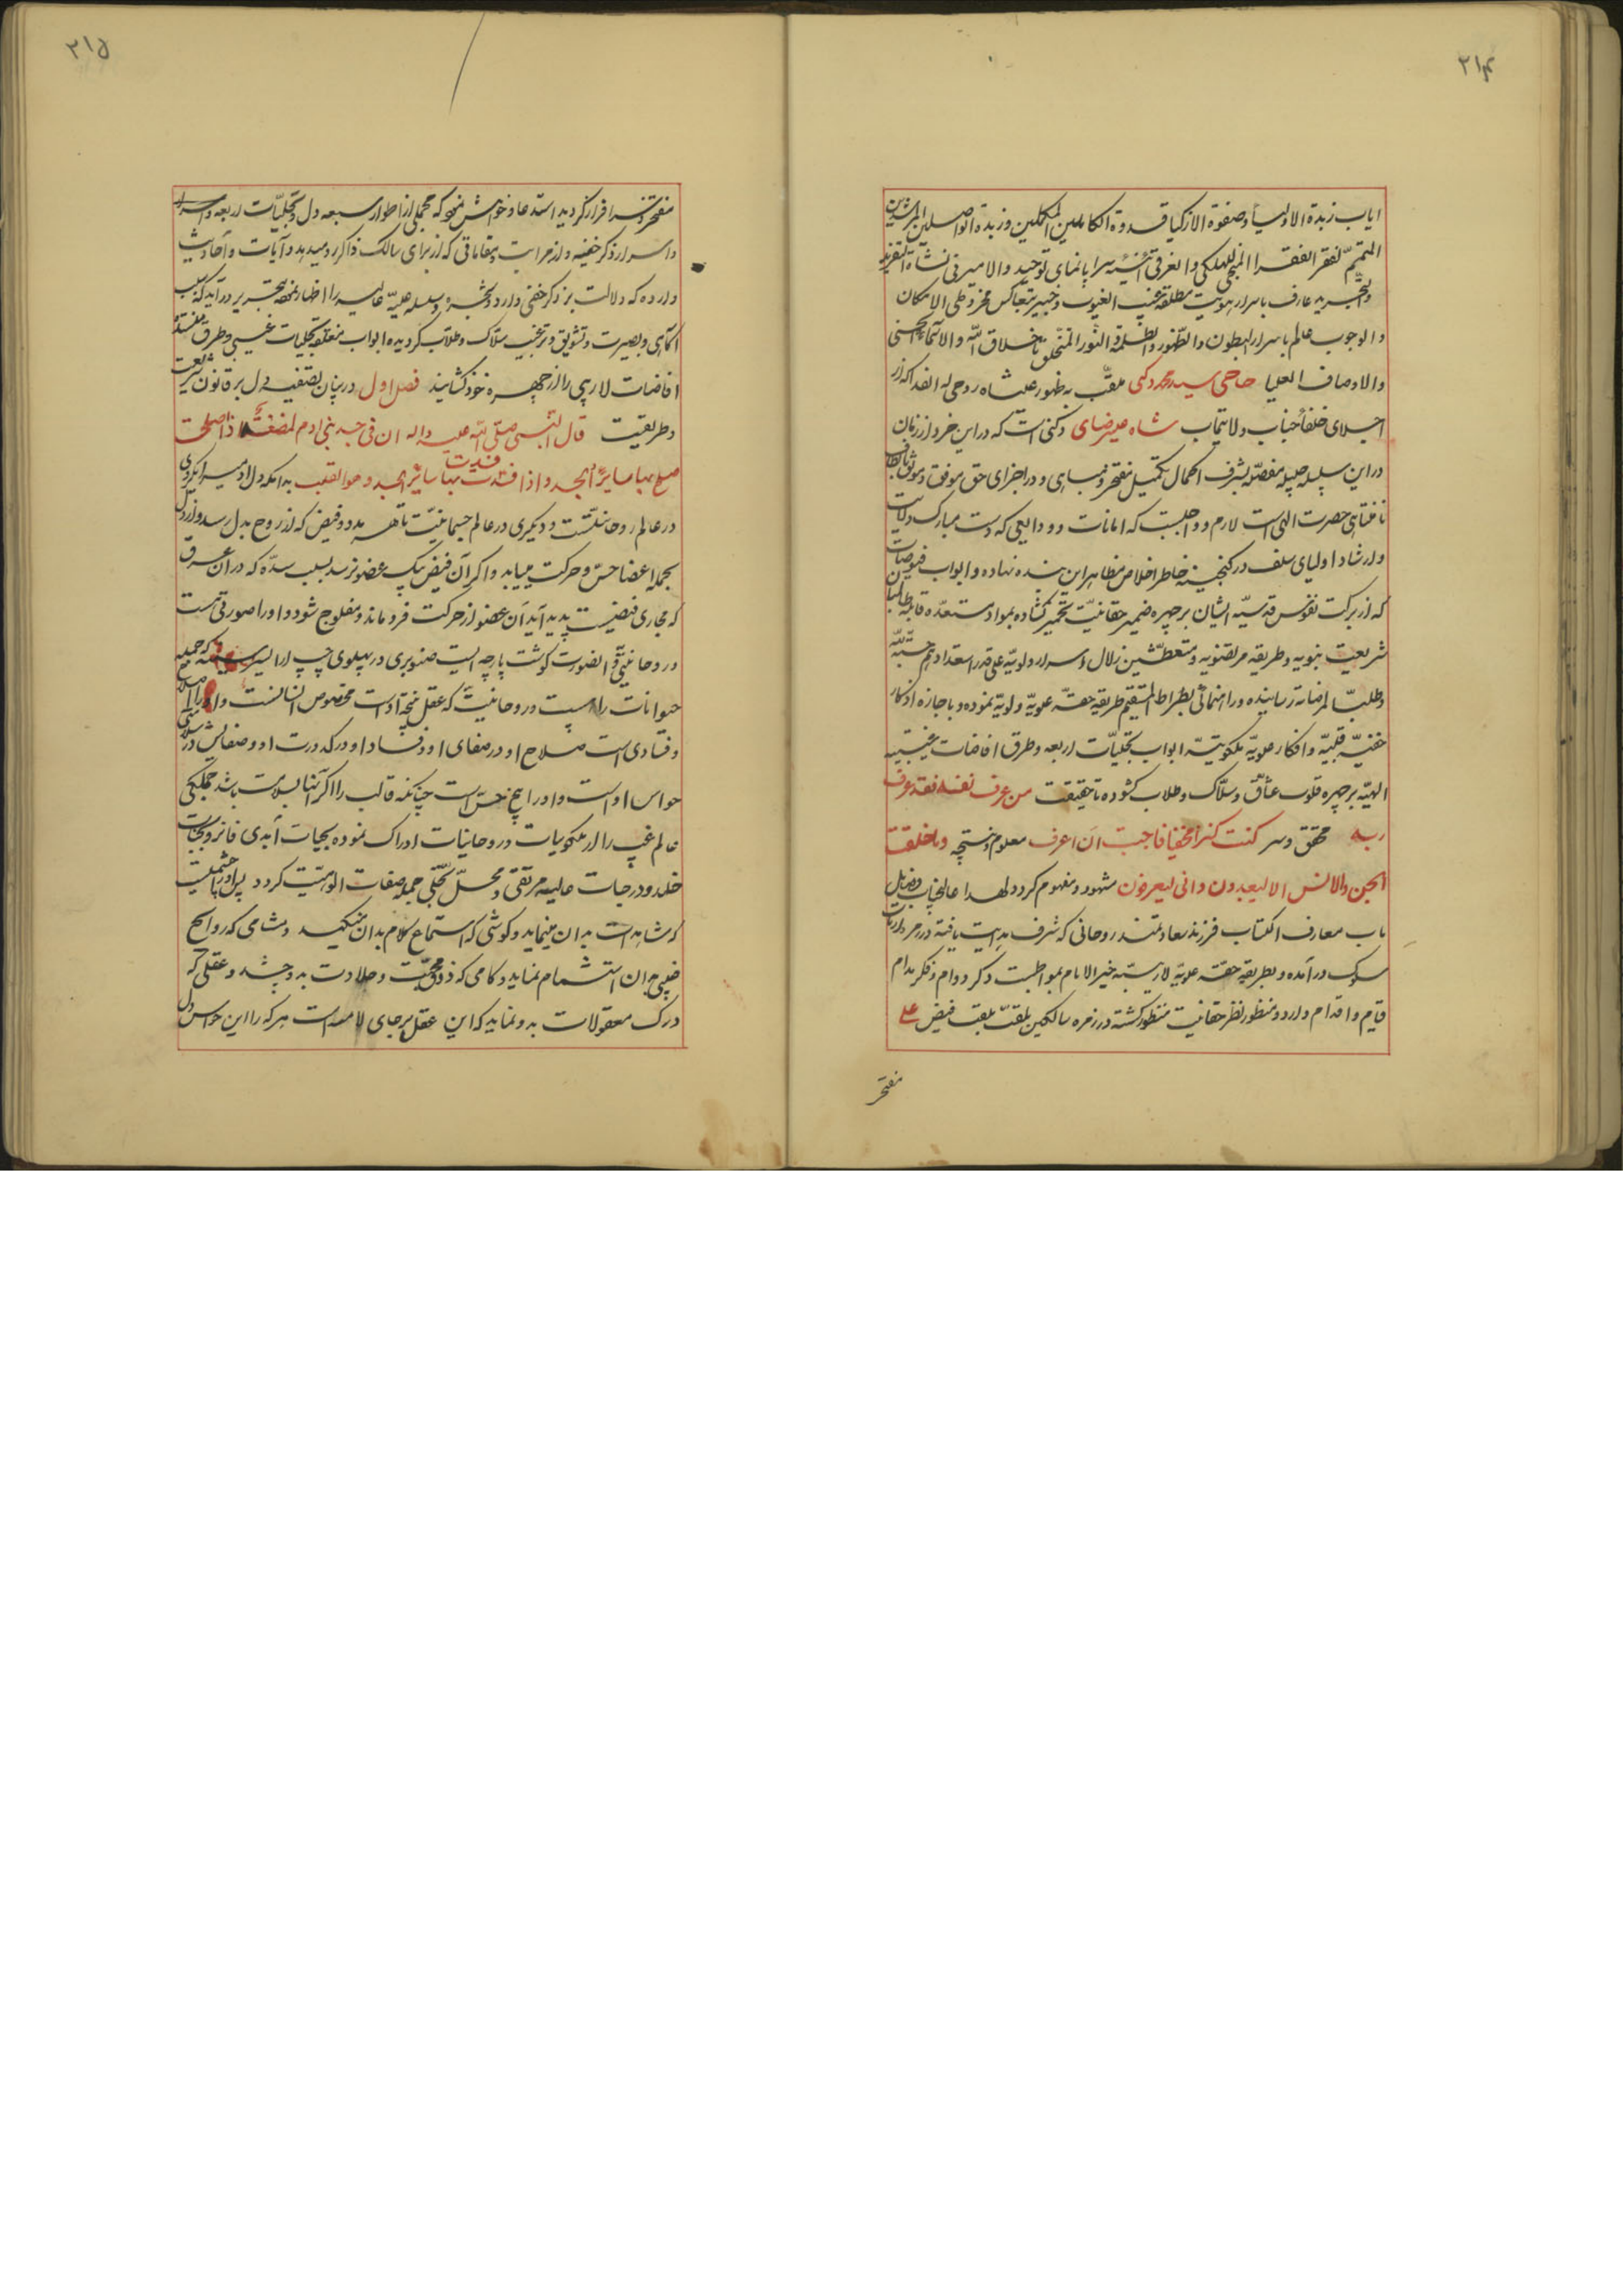 ۲۱۴
ایاب زبدة الاولیاء و صفوة الازکیا قدوة الکاملین المکملین و زبدة الواصلین المرشدین
المتمم لفقر الفقرا المنجی للهلکی والغرقی آئینه سراپا نمای توحید والامیر فی نشاة التفرید
والتجرید عارف باسرار هویت مطلقه غیب الغیوب و خبیر بتعاکس مخروطی الامکان
والوجوب عالم باسرار البطون والظهور والظلمة والنور المتخلق باخلاق الله والاسماء الحسنی
والاوصاف العلیا حاجی سید محمد دکنی ملقب به ظهور علیشاه روحی له الفدا که از
اجلای خلفا جناب ولایتماب شاه علیرضای دکنی است که در این خرد از زمان
در این سلسله جلیله مفصله بشرف اکمال تکمیل مفتخر و مباهی و در اجزای حق موفق و موثق
تا فتنای حضرت الهی است لازم و واجبست که امانات و ودایعی که دست مبارک ولایت
و ارشاد اولیای سلف در گنجینه خاطر اخلاص مظاهر این بنده نهاده و ابواب فیوضات
که از برکت نفوس قدسیه ایشان بر چهره ضمیر حقانیت تخمیر گشاده بمواد مستعده قابله طالبان
شریعت نبویه و طریقه مرتضویه و متعطشین زلال اسرار ولویه علی قدر استعدادهم حسبة لله
و طلبا لمرضاته رسانیده و راهنمائی بصراط المستقیم طریقه حقه علویه ولویه نموده و باجازه اذکار
خفیه قلبیه و افکار علویه ملکوتیه ابواب تجلیات اربعه و طرق افاضات غیبیه
الهیه بر چهره قلوب عشاق و سلاک و طلاب گشوده تا حقیقت من عرف نفسه فقد عرف
ربه محقق و سر کنت کنزا مخفیا فاحببت ان اعرف معلوم و نتیجه و ما خلقت
الجن والانس الا لیعبدون و انی لیعرفون مشهود و مفهوم گردد لهذا عالیجناب
باب معارف اکتساب فرزند سعادتمند روحانی که شرف هدایت یافته در مدارات
سلوک درآمده و بطریقه حقه علویه لازمته خیر الانام بمواظبت ذکر دوام و فکر مدام
قیام و اقدام دارد و منظور نظر حقانیت منظور گشته در زمره سالکین بلقب فیض علی
مفتخر
۲۱۵
مفتخر و سرافراز گردید استدعا و خواهش نمود که مجملی از اطوار سبعه دل و تجلیات اربعه و اسرار
و اسرار ذکر خفیه و از مراتب و مقاماتی که از برای سالک ذاکر رو میدهد و آیات و احادیث
وارده که دلالت بر ذکر خفی دارد و شجره و سلسله علیه عالیه را اظهار نموده بتحریر درآید که سبب
آگاهی و بصیرت و تشویق و ترغیب سلاک و طلاب گردیده ابواب مغلقه تجلیات غیبی و طرق منسده
افاضات لاریبی را از چهره خود گشایند فصل اول در بیان تصفیه دل بر قانون شریعت
و طریقت قال النبی صلی الله علیه و اله ان فی جسد بنی ادم لمضغة اذا صلحت
صلح بها سایر الجسد و اذا فسدت فسدت بها سایر الجسد و هو القلب بدانکه دل ادمی را یکروی
در عالم روحانیتست و دیگری در عالم جسمانیت تا هر مدد و فیض که از روح بدل رسد و از دل
بجمله اعضا حس و حرکت مییابد و اگر آن فیض بیک عضو نرسد بسبب سده که در آن عرق
که مجاری فیضیست پدید آید آن عضو از حرکت فرو ماند و مفلوج شود و او را صورتی است
و روحانیتی و الصورت گوشت پارچه ایست صنوبری در پهلوی چپ که جمله
حیوانات را هست و روحانیت که عقل نتیجه اوست مخصوص انسانست و او را صلاح
و فسادی است صلاح او در صفای او و فساد او در کدورت او و صفایش در سلامتی
حواس اوست و او را پنج حس است چنانکه قالب را اگر آنها بسلامت باشد جملگی
عالم غیب را از ملکویات و روحانیات ادراک نموده بحیات ابدی فائز و بجنات
خلد و درجات عالیه مرتقی و محل تجلی جمله صفات الوهیت گردد پس او را چشمیست
که مشاهدات بدان مینماید و گوشی که استماع کلام بدان میکند و مشامی که روایح
غیبی بدان استشمام نماید و کامی که ذوق محبت و حلاوت بدو چشد و عقلی که
درک معقولات بدو نماید که این عقل بر جای لامسه است هر که را این حواس دل